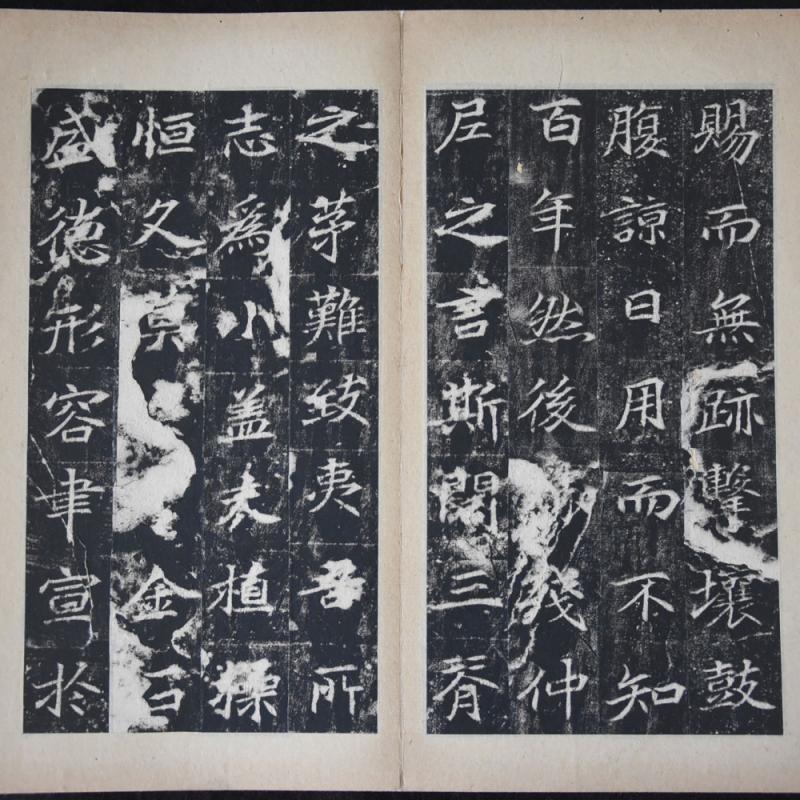 賜而無跡擊壤鼓
腹諒日用而不知
百年然後殘仲
尼之言斯闊三脊
之茅難致夷吾所
志爲小盖表植操
恒久莫金石
盛德形容聿宣於